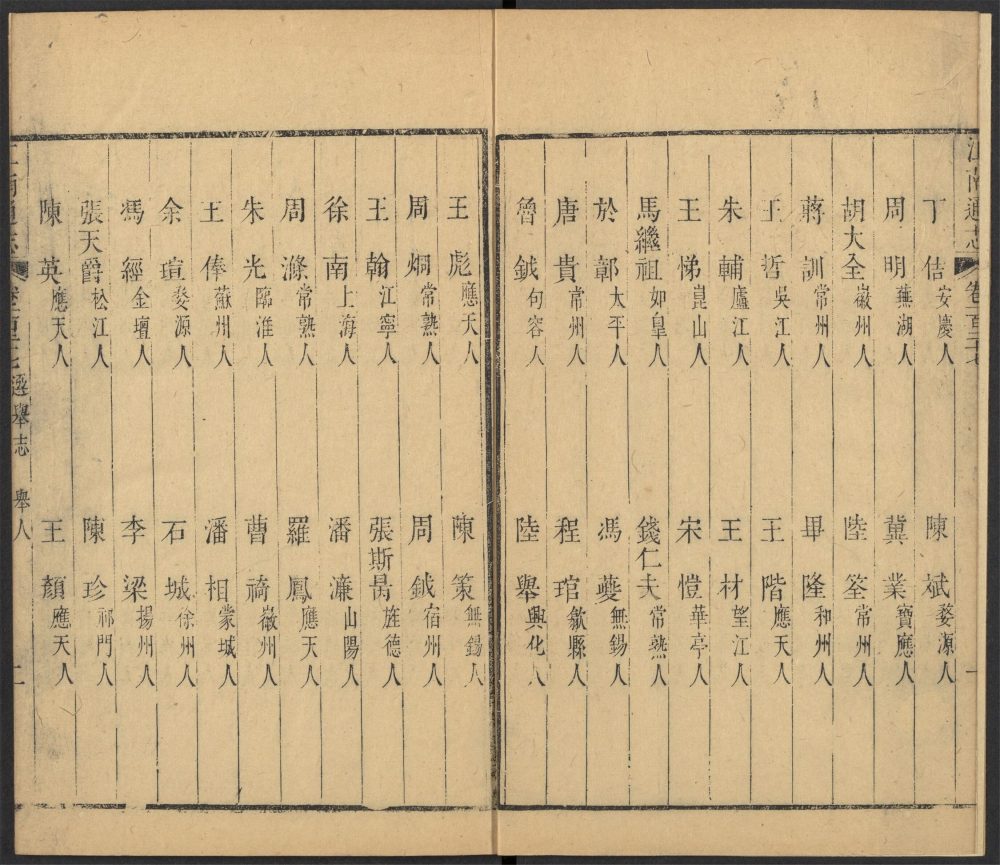 江南通志 卷一百二十七 一
丁佶安慶人 陳斌婺源人
周明蕪湖人 冀業寶應人
胡大全徽州人 陸筌常州人
蔣訓常州人 畢隆和州人
王哲吳江人 王階應天人
朱輔廬江人 王材望江人
王悌崑山人 宋愷華亭人
馬繼祖如皋人 錢仁夫常熟人
於鄣太平人 馮夔無錫人
唐貴常州人 程琯歙縣人
魯鉞句容人 陸舉興化人
王彪應天人 陳策無錫人
周炯常熟人 周鉞宿州人
王翰江寧人 張斯昺旌德人
徐南上海人 潘濂山陽人
周滌常熟人 羅鳳應天人
朱光臨淮人 曹裿徽州人
王俸蘇州人 潘相蒙城人
余瑄婺源人 石城徐州人
馮經金壇人 李梁揚州人
張天爵松江人 陳珍祁門人
陳英應天人 王顏應天人
江南通志 選舉志 舉人 二